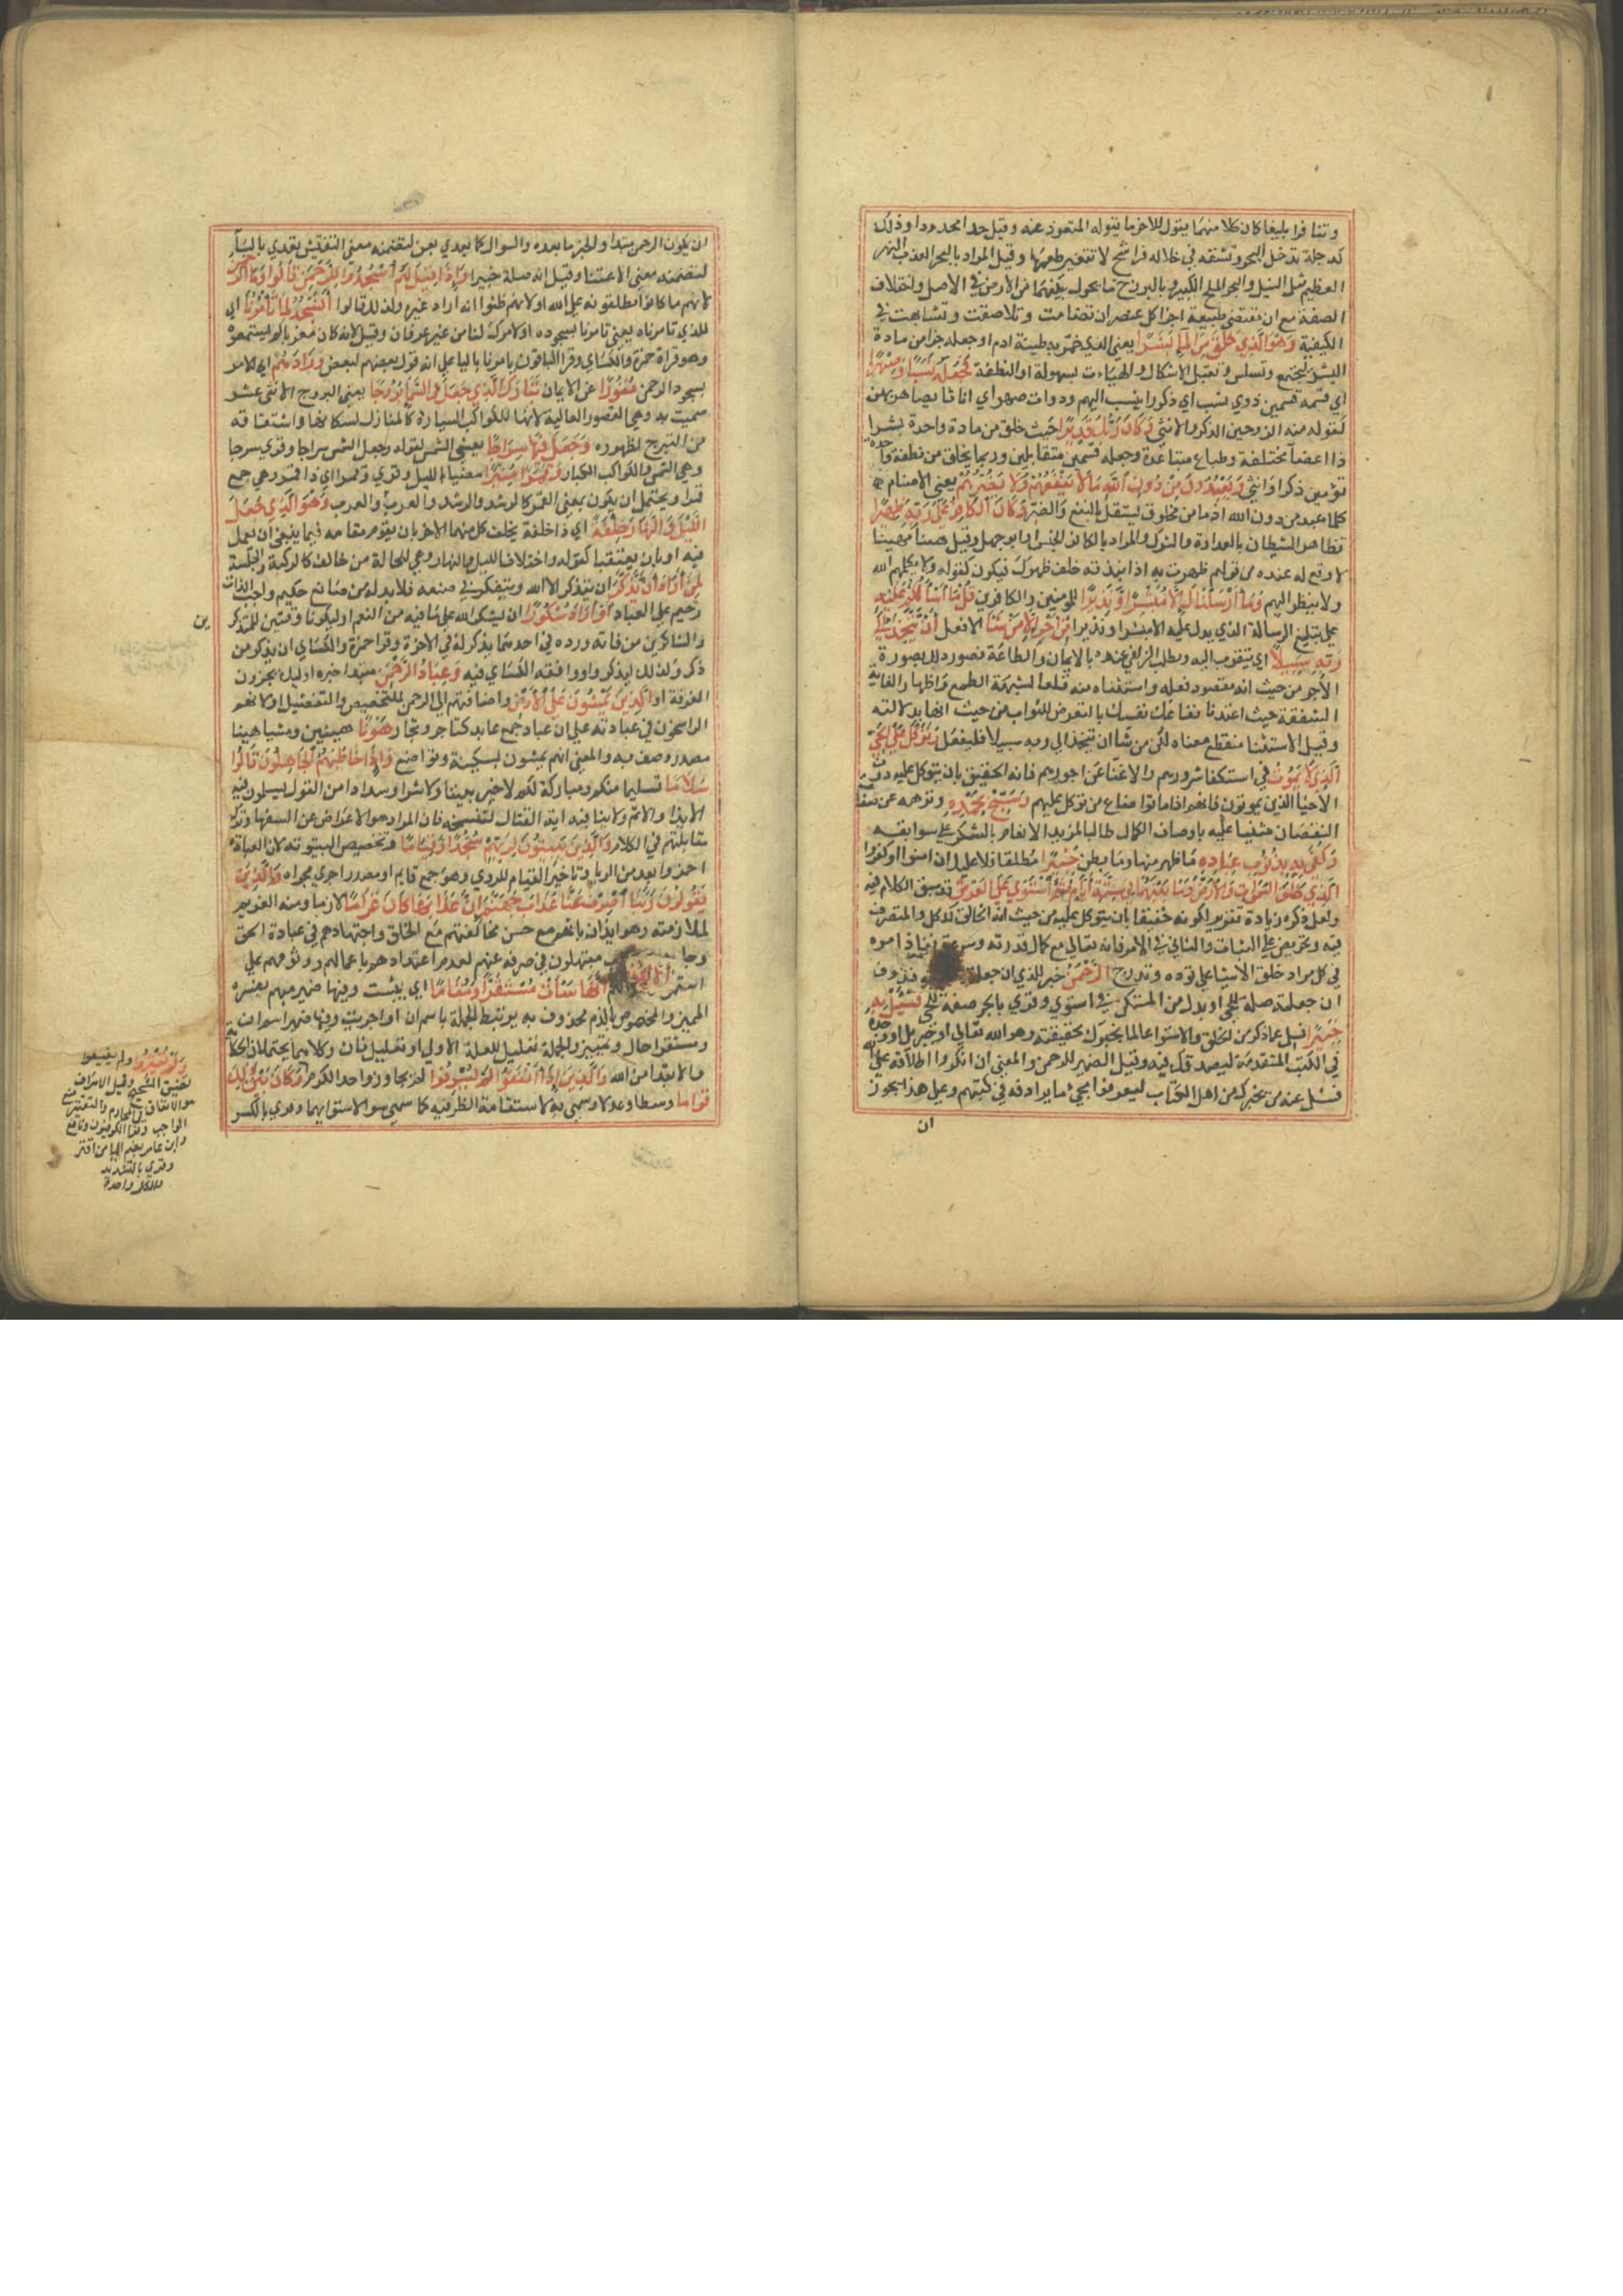 وتنافرا بليغا كان كلا منهما يقول للاخر ما يقوله المتعوذ عنه وقيل حدا محدودا وذلك
كدجلة تدخل البحر وتشقه في خلاله فراسخ لا تتغير طعمها وقيل المراد بالبحر العذب النهر
العظيم مثل النيل والبحر الملح الكبير وبالبرزخ ما يحول بينهما من الارض في الاصل واختلاف
الصفة مع ان مقتضي طبيعة اجزا كل عنصر ان تضامت وتلاصقت وتشابهت في
الكيفية وَهُوَ الَّذِي خَلَقَ مِنَ الْمَآءِ بَشَرًا يعني الذي خمر به طينة ادم او جعله جزا من مادة
البشر لتجتمع وتسلس وتقبل الاشكال والهيات بسهولة او النطفة فَجَعَلَهُ نَسَبًا وَصِهْرًا
اي قسمه قسمين ذوي نسب اي ذكورا ينسب اليهم وذوات صهر اي اناثا يصاهر بهن
كقوله منه الزوجين الذكر والانثي وَكَانَ رَبُّكَ قَدِيرًا حيث خلق من مادة واحدة بشرا
ذا اعضا مختلفة وطباع متباعدة وجعله قسمين متقابلين وربما يخلق من نطفة واحدة
توءمين ذكرا وانثي وَيَعْبُدُونَ مِنْ دُونِ اللهِ مَا لَا يَنْفَعُهُمْ وَلَا يَضُرُّهُمْ يعني الاصنام
كلما عبد من دون الله اذ ما من مخلوق يستقل بالنفع والضر وَكَانَ الْكَافِرُ عَلَى رَبِّهِ ظَهِيرًا
تظاهر الشيطان بالعداوة والشرك والمراد بالكافر الجنس او ابو جهل وقيل هينا مهينا
لا وقع له عنده من قولهم ظهرت به اذا نبذته خلف ظهرك فيكون كقوله ولا يكلمهم الله
ولا ينظر اليهم وَمَا أَرْسَلْنَاكَ إِلَّا مُبَشِّرًا وَنَذِيرًا للمؤمنين والكافرين قُلْ مَا أَسْأَلُكُمْ عَلَيْهِ
علي تبليغ الرسالة الذي يدل عليه الا مبشرا ونذيرا مِنْ أَجْرٍ إِلَّا مَنْ شَآءَ الا فعل أَنْ يَتَّخِذَ إِلَى
رَبِّهِ سَبِيلًا اي يتقرب اليه ويطلب الزلفي عنده بالايمان والطاعة فصور ذلك بصورة
الاجر من حيث انه مقصود فعله واستثناه منه قلعا لشبهة الطمع واظهارا لغاية
الشفقة حيث اعتد بانفاعك نفسك بالتعرض للثواب من حيث انها بدلالته
وقيل الاستثنا منقطع معناه لكن من شا ان يتخذ الي ربه سبيلا فليفعل وَتَوَكَّلْ عَلَى الْحَيِّ
الَّذِي لَا يَمُوتُ في استكفا شرورهم والاغنا عن اجورهم فانه الحقيق بان يتوكل عليه دون
الاحيا الذين يموتون فانهم اذا ماتوا ضاع من توكل عليهم وَسَبِّحْ بِحَمْدِهِ ونزهه عن صفات
النقصان مثنيا عليه باوصاف الكمال طالبا لمزيد الانعام بالشكر علي سوابغه
وَكَفَى بِهِ بِذُنُوبِ عِبَادِهِ ما ظهر منها وما بطن خَبِيرًا مطلقا فلا عليك ان امنوا او كفروا
الَّذِي خَلَقَ السَّمَوَاتِ وَالْأَرْضَ وَمَا بَيْنَهُمَا فِي سِتَّةِ أَيَّامٍ ثُمَّ اسْتَوَى عَلَى الْعَرْشِ قد سبق الكلام فيه
ولعل ذكره زيادة تقرير لكونه حقيقا بان يتوكل عليه من حيث انه الخالق للكل والمتصرف
فيه وتحريض علي الثبات والتاني في الامر فانه تعالي مع كمال قدرته وسرعة نفاذ امره
في كل مراد خلق الاشيا علي تؤدة وتدرج الرَّحْمَنُ خبر للذي ان جعلته محذوف
ان جعلته صلة للحي او بدل من المستكن في استوي وقري بالجر صفة للحي فَسْئَلْ بِهِ
خَبِيرًا فسل عما ذكر من الخلق والاستوا عالما يخبرك بحقيقته وهو الله تعالي او جبريل او من وجده
في الكتب المتقدمة ليصدقك فيه وقيل الضمير للرحمن والمعني ان انكروا اطلاقه علي الله
فسئل عنه من يخبرك من اهل الكتاب ليعرفوا مجي ما يرادفه في كتبهم وعلي هذا يجوز
ان
ان يكون الرحمن مبتدا والخبر ما بعده والسوال كما يعدي بعن لتضمنه معني التفتيش يعدي بالباء
لتضمنه معني الاعتنا وقيل انه صلة خبيرا وَإِذَا قِيلَ لَهُمُ اسْجُدُوا لِلرَّحْمَنِ قَالُوا وَمَا الرَّحْمَنُ
لانهم ما كانوا يطلقونه علي الله او لانهم ظنوا انه اراد غيره ولذلك قالوا أَنَسْجُدُ لِمَا تَأْمُرُنَا اي
للذي تامرناه يعني تامرنا بسجوده او لامرك لنا من غير عرفان وقيل لانه كان معربا لم يسمعوه
وهو قراة حمزة والكسائ وقرا الباقون يامرنا باليا علي انه قول بعضهم لبعض وَزَادَهُمْ اي الامر
بسجود الرحمن نُفُورًا عن الايمان تَبَارَكَ الَّذِي جَعَلَ فِي السَّمَاءِ بُرُوجًا يعني البروج الاثني عشر
سميت به وهي القصور العالية لانها للكواكب السيارة كالمنازل لسكانها واشتقاقه
من التبرج لظهوره وَجَعَلَ فِيهَا سِرَاجًا يعني الشمس لقوله وجعل الشمس سراجا وقري سرجا
وهي الشمس والكواكب الكبار وَقَمَرًا مُنِيرًا مضيا بالليل وقري وقمرا اي ذا قمر وهي جمع
قمرا ويحتمل ان يكون بمعني القمر كالرشد والرشد والعرب والعرب وَهُوَ الَّذِي جَعَلَ
اللَّيْلَ وَالنَّهَارَ خِلْفَةً اي ذا خلفة يخلف كل منهما الاخر بان يقوم مقامه فيما ينبغي ان يعمل
فيه او بان يعتقبا كقوله واختلاف الليل والنهار وهي للحالة من خالف كالركبة والجلسة
لِمَنْ أَرَادَ أَنْ يَذَّكَّرَ ان يتذكر الا الله ويتفكر في صنعه فلا بد له من صانع حكيم واجب الذات
رحيم علي العباد أَوْ أَرَادَ شُكُورًا ان يشكر الله علي ما فيه من النعم او ليكونا وقتين للمتذكر
ين
والشاكرين من فاته ورده في احدهما يذكر له في الاخرة وقرا حمزة والكسائ ان يذكر من
ذكر وكذلك ليذكروا ووافقه الكسائ فيه وَعِبَادُ الرَّحْمَنِ مبتدا خبره اوليك يجزون
الغرفة او الَّذِينَ يَمْشُونَ عَلَى الْأَرْضِ واضافتهم الي الرحمن للتخصيص والتفضيل او لانهم
الراسخون في عبادته علي ان عباد جمع عابد كتاجر وتجار هَوْنًا هينين او مشيا هينا
مصدر وصف به والمعني انهم يمشون بسكينة وتواضع وَإِذَا خَاطَبَهُمُ الْجَاهِلُونَ قَالُوا
سَلَامًا تسليما منكم ومتاركة لكم لا خير بيننا ولا شر او سدادا من القول يسلمون فيه
الايذا والاثم ولا ينافيه اية القتال لتنسخه فان المراد هو الاغراض عن السفها وترك
مقابلتهم في الكلام وَالَّذِينَ يَبِيتُونَ لِرَبِّهِمْ سُجَّدًا وَقِيَامًا وتخصيص البيتوتة لان العبادة
احمز وابعد من الريا وتاخير القيام للروي وهو جمع قايم او مصدر اجري مجراه وَالَّذِينَ
يَقُولُونَ رَبَّنَا اصْرِفْ عَنَّا عَذَابَ جَهَنَّمَ إِنَّ عَذَابَهَا كَانَ غَرَامًا لازما ومنه الغريم
لملازمته وهو ايذان بانهم مع حسن مخالقتهم مع الخلق واجتهادهم في عبادة الحق
وجلون مبتهلون في صرفه عنهم لعدم اعتدادهم باعمالهم ووثوقهم علي
استمرار إِنَّهَا سَاءَتْ مُسْتَقَرًّا وَمُقَامًا اي بيست وفيها ضمير مبهم يفسره
المميز والمخصوص بالذم محذوف به يرتبط الجملة باسم ان او احزنت وفيها ضمير اسم ان
ومستقرا حال او تمييز والجملة تعليل للعلة الاولي او تعليل ثان وكلاهما يحتملان الحكاية
والابتدا من الله وَالَّذِينَ إِذَا أَنْفَقُوا لَمْ يُسْرِفُوا لم يجاوزوا حد الكرم وَكَانَ بَيْنَ ذَلِكَ
قَوَامًا وسطا وعدلا وسمي به لاستقامة الطرفين كما سمي سوا لاستوايهما وقري بالكسر
وَلَمْ يَقْتُرُوا ولم يضيقوا
تضييق الشحيح وقيل الاسراف
هو الانفاق في المحارم والتقتير منع
الواجب وقرا الكوفيون ونافع
وابن عامر بضم اليا من اقتر
وقري بالتشديد
والكل واحدة